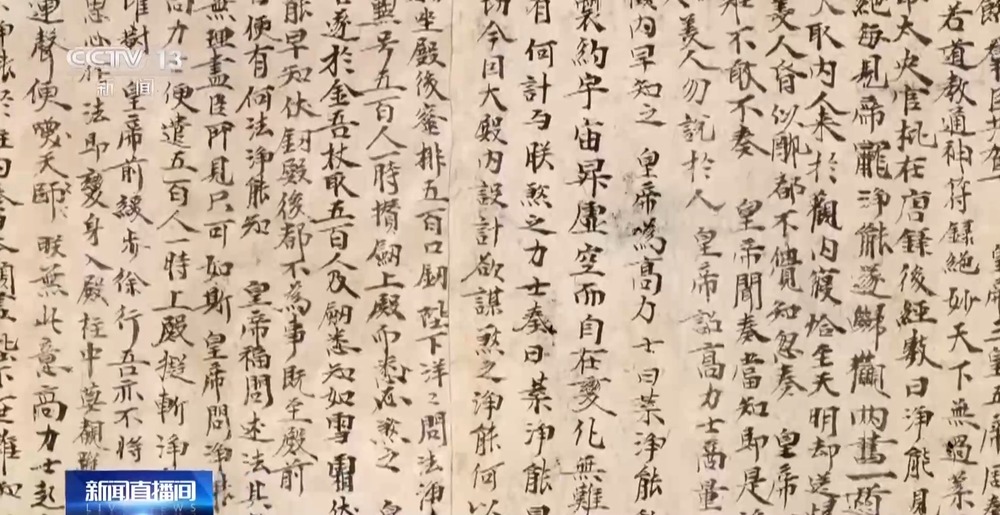 CCTV 13
新闻
若道教通神符籙絕妙天下無過葉
太史官執在唐錄後經數日淨能見
絕每見帝寵淨能遂歸觀內書一道
人取內人來於觀內寢恰至天明却送歸
美人昏似醉都不覺知忽奏 皇帝
不敢不奏 皇帝聞奏當知即是
美人勿說於人 皇帝詔高力士商量
內早知之 皇帝為高力士曰葉淨能
製約宇宙昇虛空而自在變化無難
有何計与朕煞之力士奏曰葉淨能是
切今因大殿內設計欲謀煞之淨能何以
坐殿後蜜排五百口劒陛下洋〻問法淨
号五百人一時攢劒上殿而悉煞之 皇
遂於金吾杖取五百人及劒悉如雪霜伏
能早知伏劒殿後都不為事既至殿前
便有何法淨能知 皇帝稱問述法其
無理盡臣所見只可如斯 皇帝問淨能
高力士便遣五百人一時上殿擬斬淨
樹 皇帝前緩步徐行吾亦不將
惡心作法即變身入殿柱中莫覩
連聲便喚天師 朕無此意高力士起
新闻直播间
LIVE NEWS